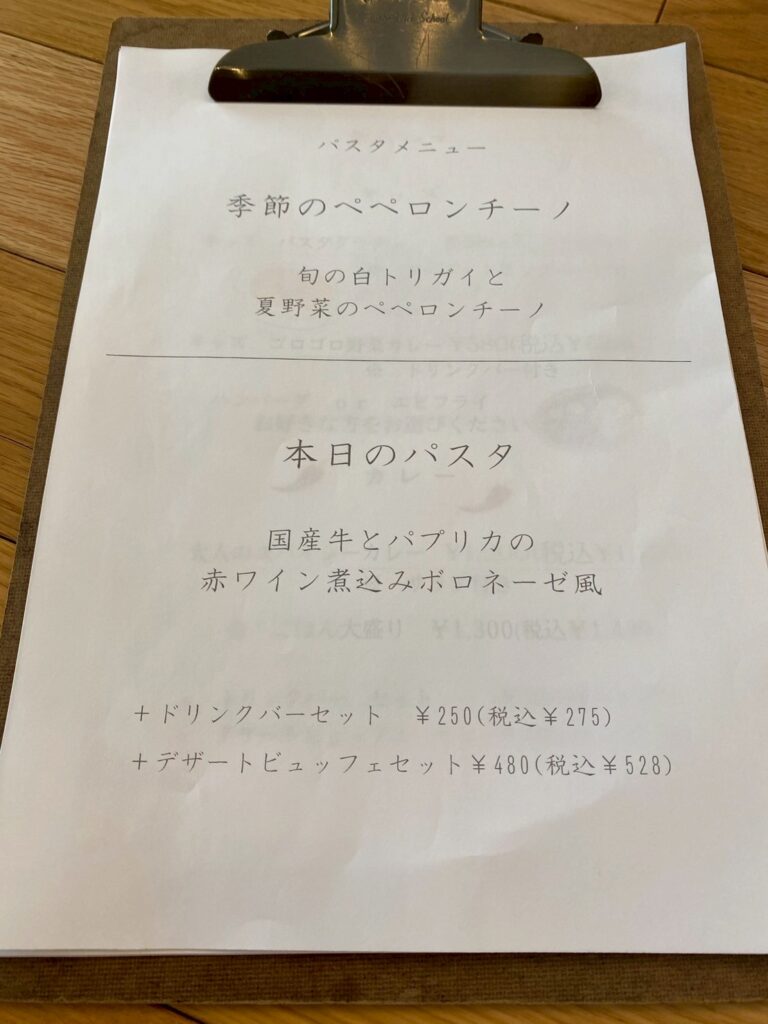 パスタメニュー
季節のペペロンチーノ
旬の白トリガイと
夏野菜のペペロンチーノ
本日のパスタ
国産牛とパプリカの
赤ワイン煮込みボロネーゼ風
＋ドリンクバーセット　￥250(税込￥275)
＋デザートビュッフェセット￥480(税込￥528)